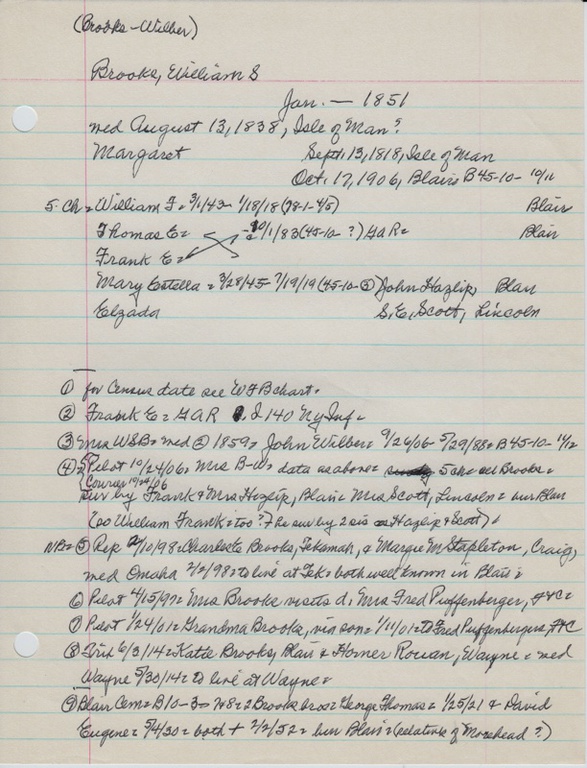 (Brooks-Wilber)
Brooks, William S
Jan. — 1851
med August 13, 1838, Isle of Man?
Margaret Sept. 13, 1818, Isle of Man
Oct. 17, 1906, Blair B45-10- 10/11
5 Ch = William F = 3/1/43 - 1/18/18 (78-1-4/5) Blair
Thomas E = 10/1/83 (45-10 ?) GAR = Blair
Frank E =
Mary Estella = 3/28/45 - 7/19/19 (45-10- John Hazlip, Blair
Elzada S. E. Scott, Lincoln
① for Census date see WFB chart.
② Frank E = GAR I 140 Ny Inf =
③ Mrs WSB = med ② 1859 = John Wilber = 9/26/06 - 5/29/88 = B45-10-
④ Pilot 10/24/06 = Mrs B-W = data as above = 5 ch = all Brooks =
Courier 10/24/06
sur by Frank & Mrs Hazlip, Blair = Mrs Scott, Lincoln = bur Blair
(so William Frank = too? The sur by 2 sis as Hazlip & Scott)
NB = ⑤ Rep 2/10/98 = Charles E Brooks, Tekamah, & Margie M Stapleton, Craig,
med Omaha 2/2/98 = to live at Tek = both well known in Blair =
⑥ Pilot 4/15/97 = Mrs Brooks visits d, Mrs Fred Puffenberger, Ft C =
⑦ Pilot 1/24/01 = Grandma Brooks, via son = 1/11/01 = to Fred Puffenbergers, Ft C
⑧ Trib 6/3/14 = Katie Brooks, Blair & Homer Rowan, Wayne = med
Wayne 5/30/14 = to live at Wayne =
⑨ Blair Cem = B10-3 = 7&8 = 2 Brooks bros = George Thomas = 1/25/21 & David
Eugene = 5/4/30 = both + 2/2/52 = bur Blair = (relatives of Morehead ?)